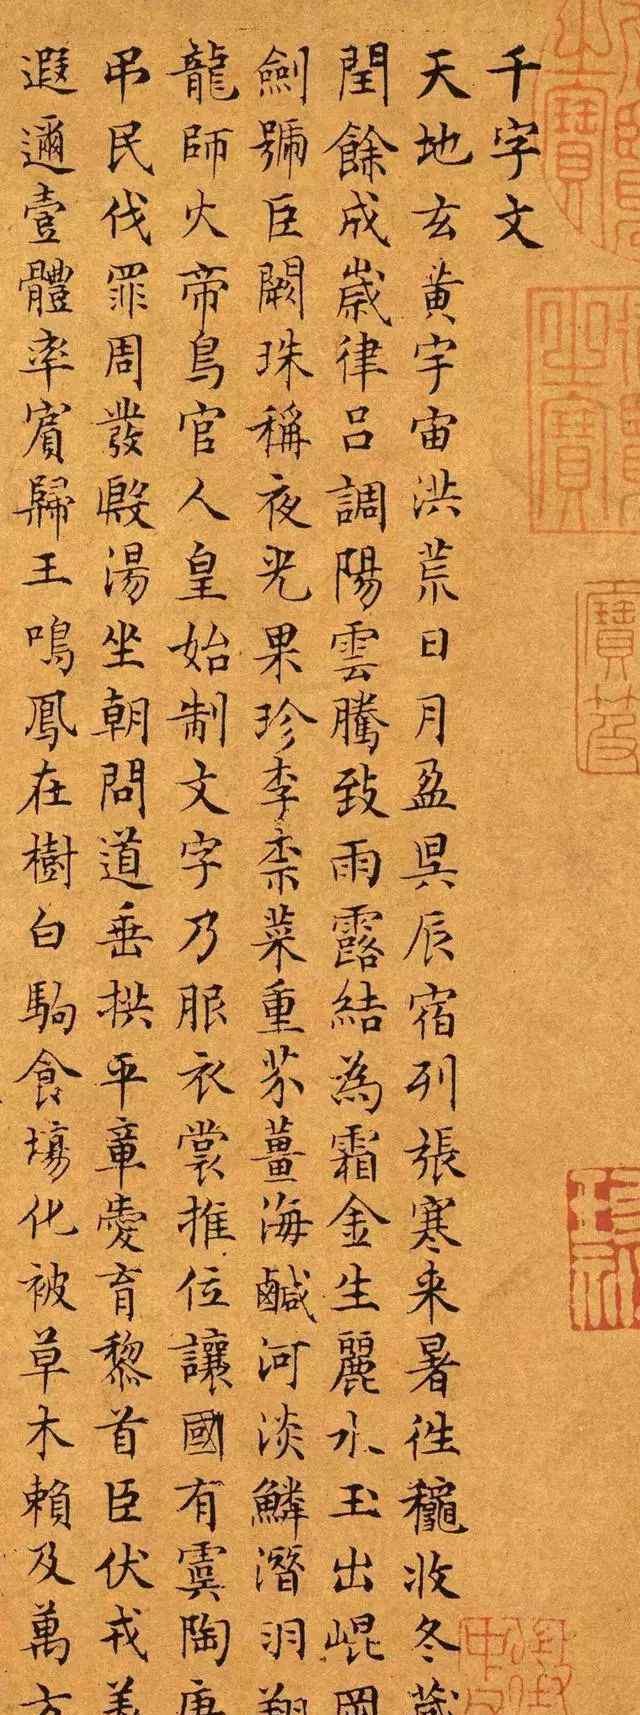 千字文
天地玄黃宇宙洪荒日月盈昃辰宿列張寒来暑往穐收冬藏
閏餘成歲律呂調陽雲騰致雨露結為霜金生麗水玉出崐岡
劍號巨闕珠稱夜光果珍李柰菜重芥薑海鹹河淡鱗潛羽翔
龍師火帝鳥官人皇始制文字乃服衣裳推位讓國有虞陶唐
吊民伐罪周發殷湯坐朝問道垂拱平章愛育黎首臣伏戎羌
遐邇壹體率賓歸王鳴鳳在樹白駒食場化被草木賴及萬方